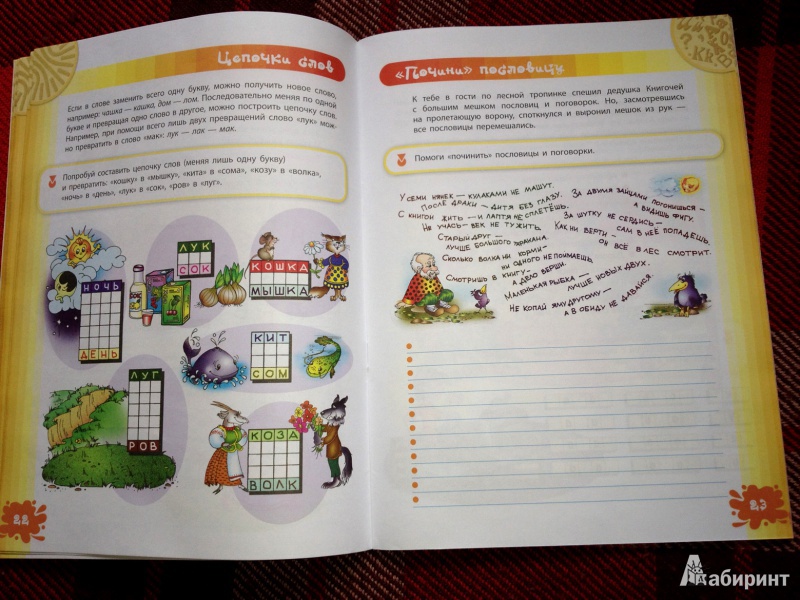 Цепочки слов
Если в слове заменить всего одну букву, можно получить новое слово,
например: чашка — кашка, дом — лом. Последовательно меняя по одной
букве и превращая одно слово в другое, можно построить цепочку слов.
Например, при помощи всего лишь двух превращений слово «лук» мож-
но превратить в слово «мак»: лук — лак — мак.
Попробуй составить цепочку слов (меняя лишь одну букву)
и превратить: «кошку» в «мышку», «кита» в «сома», «козу» в «волка»,
«ночь» в «день», «лук» в «сок», «ров» в «луг».
ЛУК
СОК
КОШКА
МЫШКА
НОЧЬ
ДЕНЬ
КИТ
СОМ
ЛУГ
РОВ
КОЗА
ВОЛК
22
«Почини» пословицу
К тебе в гости по лесной тропинке спешил дедушка Книгочей
с большим мешком пословиц и поговорок. Но, засмотревшись
на пролетающую ворону, споткнулся и выронил мешок из рук —
все пословицы перемешались.
Помоги «починить» пословицы и поговорки.
У семи нянек — кулаками не машут.
После драки — дитя без глазу.
За двумя зайцами погонишься —
а видишь фигу.
С книгой жить — и лаптя не сплетёшь.
За шутку не сердись —
Не учась — век не тужить.
сам в неё попадёшь.
Старый друг —
лучше большого таракана.
Как ни верти —
он всё в лес смотрит.
Сколько волка ни корми —
ни одного не поймаешь.
Смотришь в книгу —
а дело верши.
Маленькая рыбка —
лучше новых двух.
Не копай яму другому —
а в обиду не давайся.
23
Лабиринт